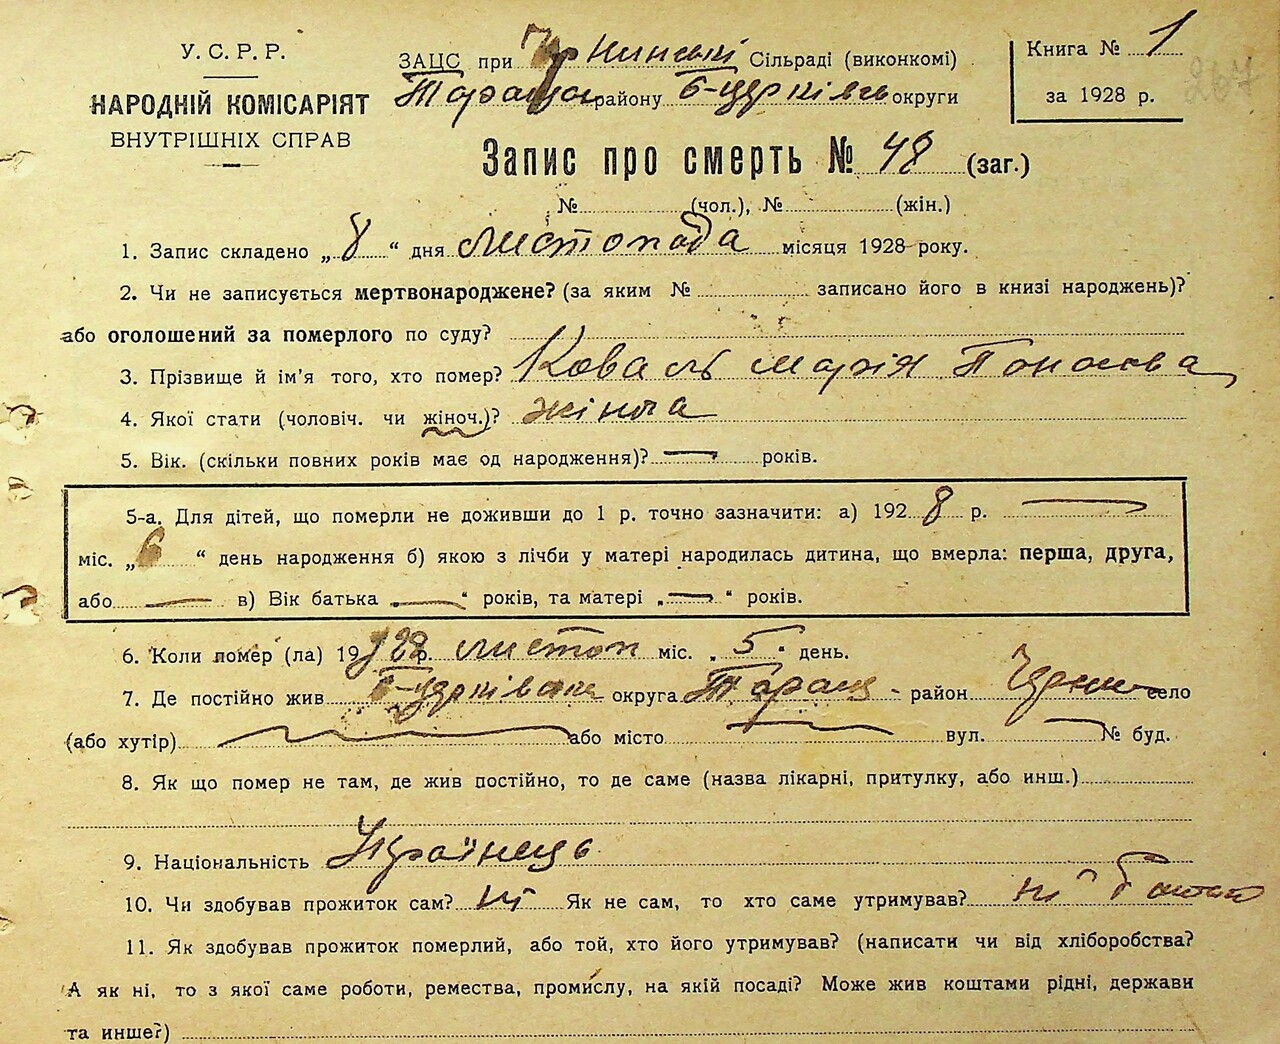 У.С.Р.Р.
НАРОДНІЙ КОМІСАРІЯТ
ВНУТРІШНІХ СПРАВ
ЗАЦС при Сільраді (виконкомі)
району Б-церківськ округи
Книга № 1
за 1928 р.
267
Запис про смерть № 48 (заг.)
№ (чол.), № (жін.)
1. Запис складено „8“ дня листопада місяця 1928 року.
2. Чи не записується мертвонароджене? (за яким № записано його в книзі народжень)?
або оголошений за померлого по суду?
3. Прізвище й ім'я того, хто помер? Коваль Марія Панасова
4. Якої стати (чоловіч. чи жіноч.)? жіноча
5. Вік. (скільки повних років має од народження)? — років.
5-а. Для дітей, що померли не доживши до 1 р. точно зазначити: а) 1928 р. —
міс. „6“ день народження б) якою з лічби у матері народилась дитина, що вмерла: перша, друга,
або — в) Вік батька „—“ років, та матері „—“ років.
6. Коли помер (ла) 1928 р. листоп міс. „5“ день.
7. Де постійно жив Б-церківськ округа Таращ - район село
(або хутір) — або місто — вул. — № буд.
8. Як що помер не там, де жив постійно, то де саме (назва лікарні, притулку, або инш.)
9. Національність Українець
10. Чи здобував прожиток сам? ні Як не сам, то хто саме утримував? ні
11. Як здобував прожиток померлий, або той, хто його утримував? (написати чи від хліборобства?
А як ні, то з якої саме роботи, ремества, промислу, на якій посаді? Може жив коштами рідні, держави
та инше?)